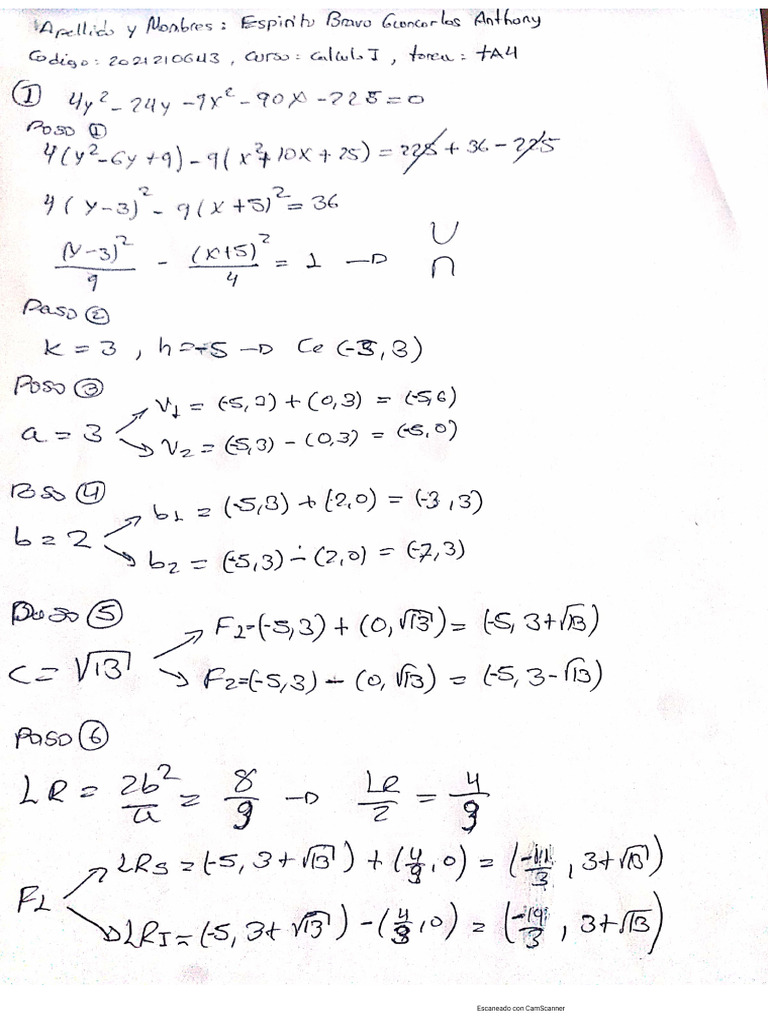 Apellido y Nombres: Espiritu Bravo Gioncarlos Anthony
Codigo: 2021210643, Curso: Calculo I, tarea: tA4
① 4y² - 24y - 9x² - 90x - 225 = 0
Paso ①
4(y² - 6y + 9) - 9(x² + 10x + 25) = 225 + 36 - 225
4(y-3)² - 9(x+5)² = 36
(y-3)²/9 - (x+5)²/4 = 1 → ∪ ∩
Paso ②
k = 3, h = -5 → Ce (-5, 3)
Paso ③
a = 3
V1 = (-5, 3) + (0, 3) = (-5, 6)
V2 = (-5, 3) - (0, 3) = (-5, 0)
Paso ④
b = 2
b1 = (-5, 3) + (2, 0) = (-3, 3)
b2 = (-5, 3) - (2, 0) = (-7, 3)
Paso ⑤
c = √13
F2 = (-5, 3) + (0, √13) = (-5, 3+√13)
F2 = (-5, 3) - (0, √13) = (-5, 3-√13)
Paso ⑥
LR = 2b²/a = 8/3 → LR/2 = 4/3
F1
LRS = (-5, 3+√13) + (4/3, 0) = (-11/3, 3+√13)
LRI = (-5, 3+√13) - (4/3, 0) = (-19/3, 3+√13)
Escaneado con CamScanner